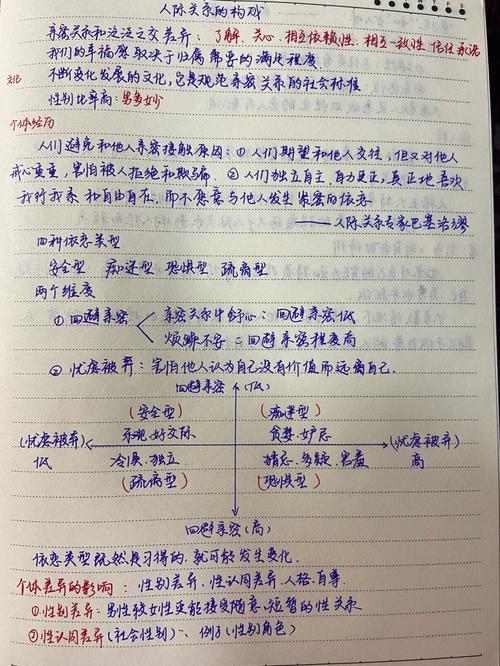 人际关系的构成
亲密关系和泛泛之交差异：了解、关心、相互依赖性、相互一致性、信任、承诺
我们的幸福感取决于归属需要的满足程度
文化 不断变化发展的文化，它是规范亲密关系的社会标准
性别比率高：男多女少
个体经历
人们避免和他人亲密接触原因：①人们期望和他人交往，但又对他人
戒心重重，害怕被人拒绝和欺骗。②人们独立自主、自力更正，真正地喜欢
我行我素和自由自在，而不愿意与他人发生紧密的依恋
——人际关系专家巴塞洛缪
四种依恋类型
安全型 痴迷型 恐惧型 疏离型
两个维度
①回避亲密 亲密关系中舒心：回避亲密低
烦躁不安：回避亲密程度高
②忧虑被弃：害怕他人认为自己没有价值而远离自己．
回避亲密（低）
（安全型） （痴迷型）
乐观、好交际 贪婪、妒忌
（忧虑被弃） （忧虑被弃）
低 冷漠、独立 猜忌、多疑、害羞 高
（疏离型） （恐惧型）
回避亲密（高）
依恋类型既然是习得的，就可能发生变化．
个体差异的影响：性别差异、性认同差异、人格、自尊
①性别差异：男性较女性更能接受随意、短暂的性关系
②性认同差异（社会性别）、例子（性别角色）